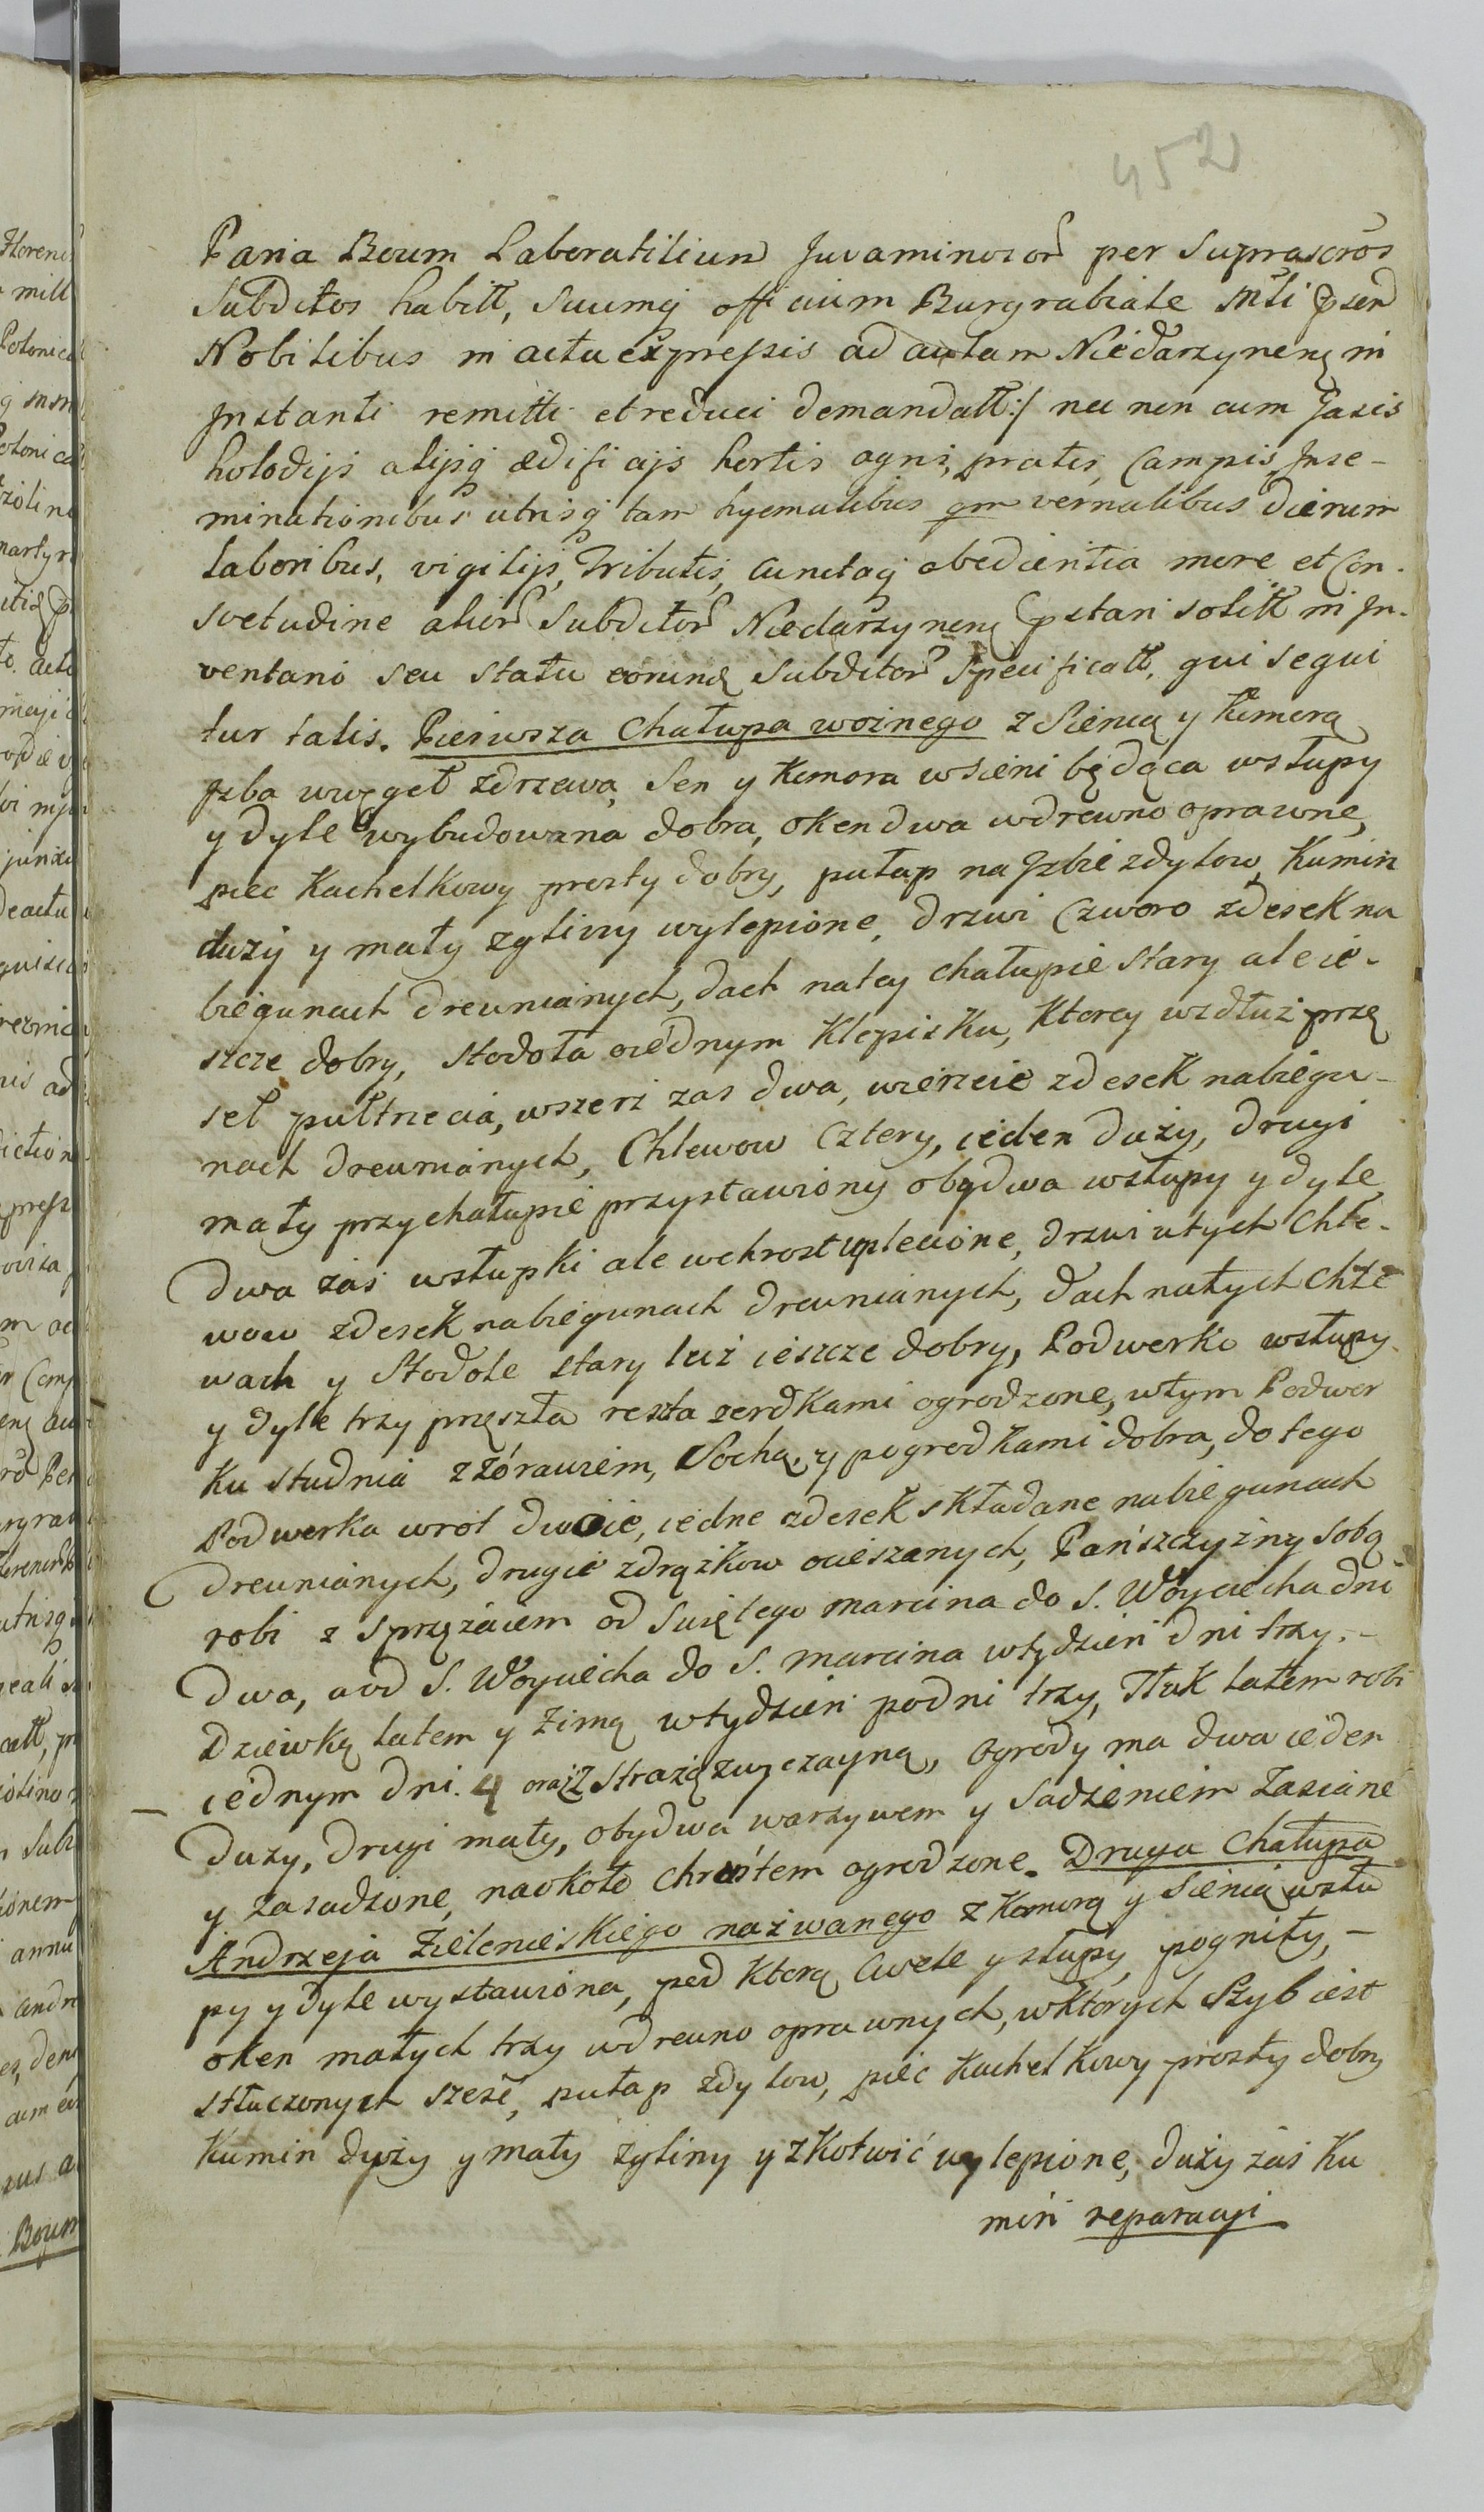 452
Paria Boum Laboratilium Juvaminosor per Suprascros
Subditos habitt, Suumq officium Burgrabiale Mti psen
Nobilibus in actu expressis ad aulam Niedarzynenς in
Instanti remitti et reduci demandatt:/ nec non cum Gasis
holodijs alijsq ædificijs hortis agris, pratis, Campis, Inse-
minationibus utrisq tam hyemalibus qm vernalibus dierum
laboribus, vigilijs, Tributis, cunctaq obedientia more et Con-
svetudine alior Subditor Niedarzynenς pstari solitt in In-
ventario seu statu eorundς Subditor Specificatt, qui sequi
tur talis. Pierwsza Chałupa woznego z Sienią y Komorą
Jzba wwęgeł zdrzewa, Sen y Komora wsieni będąca wsłupy
y dyle wybudowana dobra, oken dwa wdrewno oprawne,
piec Kachelkowy prosty dobry, pułap na Jzbie zdylow, Kumin
duży y mały zgliny wylepione, drzwi Czworo zdesek na
biegunach drewnianych, dach natey chałupie stary ale ie-
szcze dobry, stodoła oiednym Klepisku, Ktorey wzdłuż przę
seł pułtrzecia, wszerz zas dwa, wierzeie zdesek nabiegu-
nach drewnianych, Chlewow Cztery, ieden duży, drugi
mały przychałupie przystawiony obydwa wsłupy y dyle,
dwa zas wsłupki ale wchrost uplecione, drzwi utych Chle-
wow zdesek nabiegunach drewnianych, dach natych Chle
wach y Stodole stary lecz ieszcze dobry, Podworko wsłupy
y dyle trzy pręszła reszta zerdkami ogrodzone, wtym Podwor
ku studnia zżórawiem, Sochą, y pogrodkami dobra, do tego
Podworka wrot dwoie, iedne zdesek składane nabiegunach
drewnianych, drugie zdrążkow ociesanych, Pańszczyżny sobą
robi z sprzężaiem od Swiętego Marcina do S. Woyciecha dni
dwa, a od S. Woyciecha do S. Marcina wtydzień dni trzy.-
Dziewką latem y zimą wtydzien podni trzy, Tłuk latem robi
iednym dni. 4 oraz Z Strażą zwyczayną, Ogrody ma dwa ieden
duży, drugi mały, obydwa warzywem y sadzeniem zasiane
y zasadzone, naokoło chrostem ogrodzone. Druga Chałupa
Andrzeja Zielenieskiego nazwanego z Komorą y Sienią wsłu
py y dyle wystawiona, pod Ktorą Cwele y słupy pogniły,-
oken małych trzy wdrewno oprawnych, wktorych Szyb iest
stłuczonych szesć, pułap zdylow, piéc Kachelkowy prosty dobry
Kumin duży y mały zgliny y zKołwić wylepione, duży zas Ku
min reparacyi